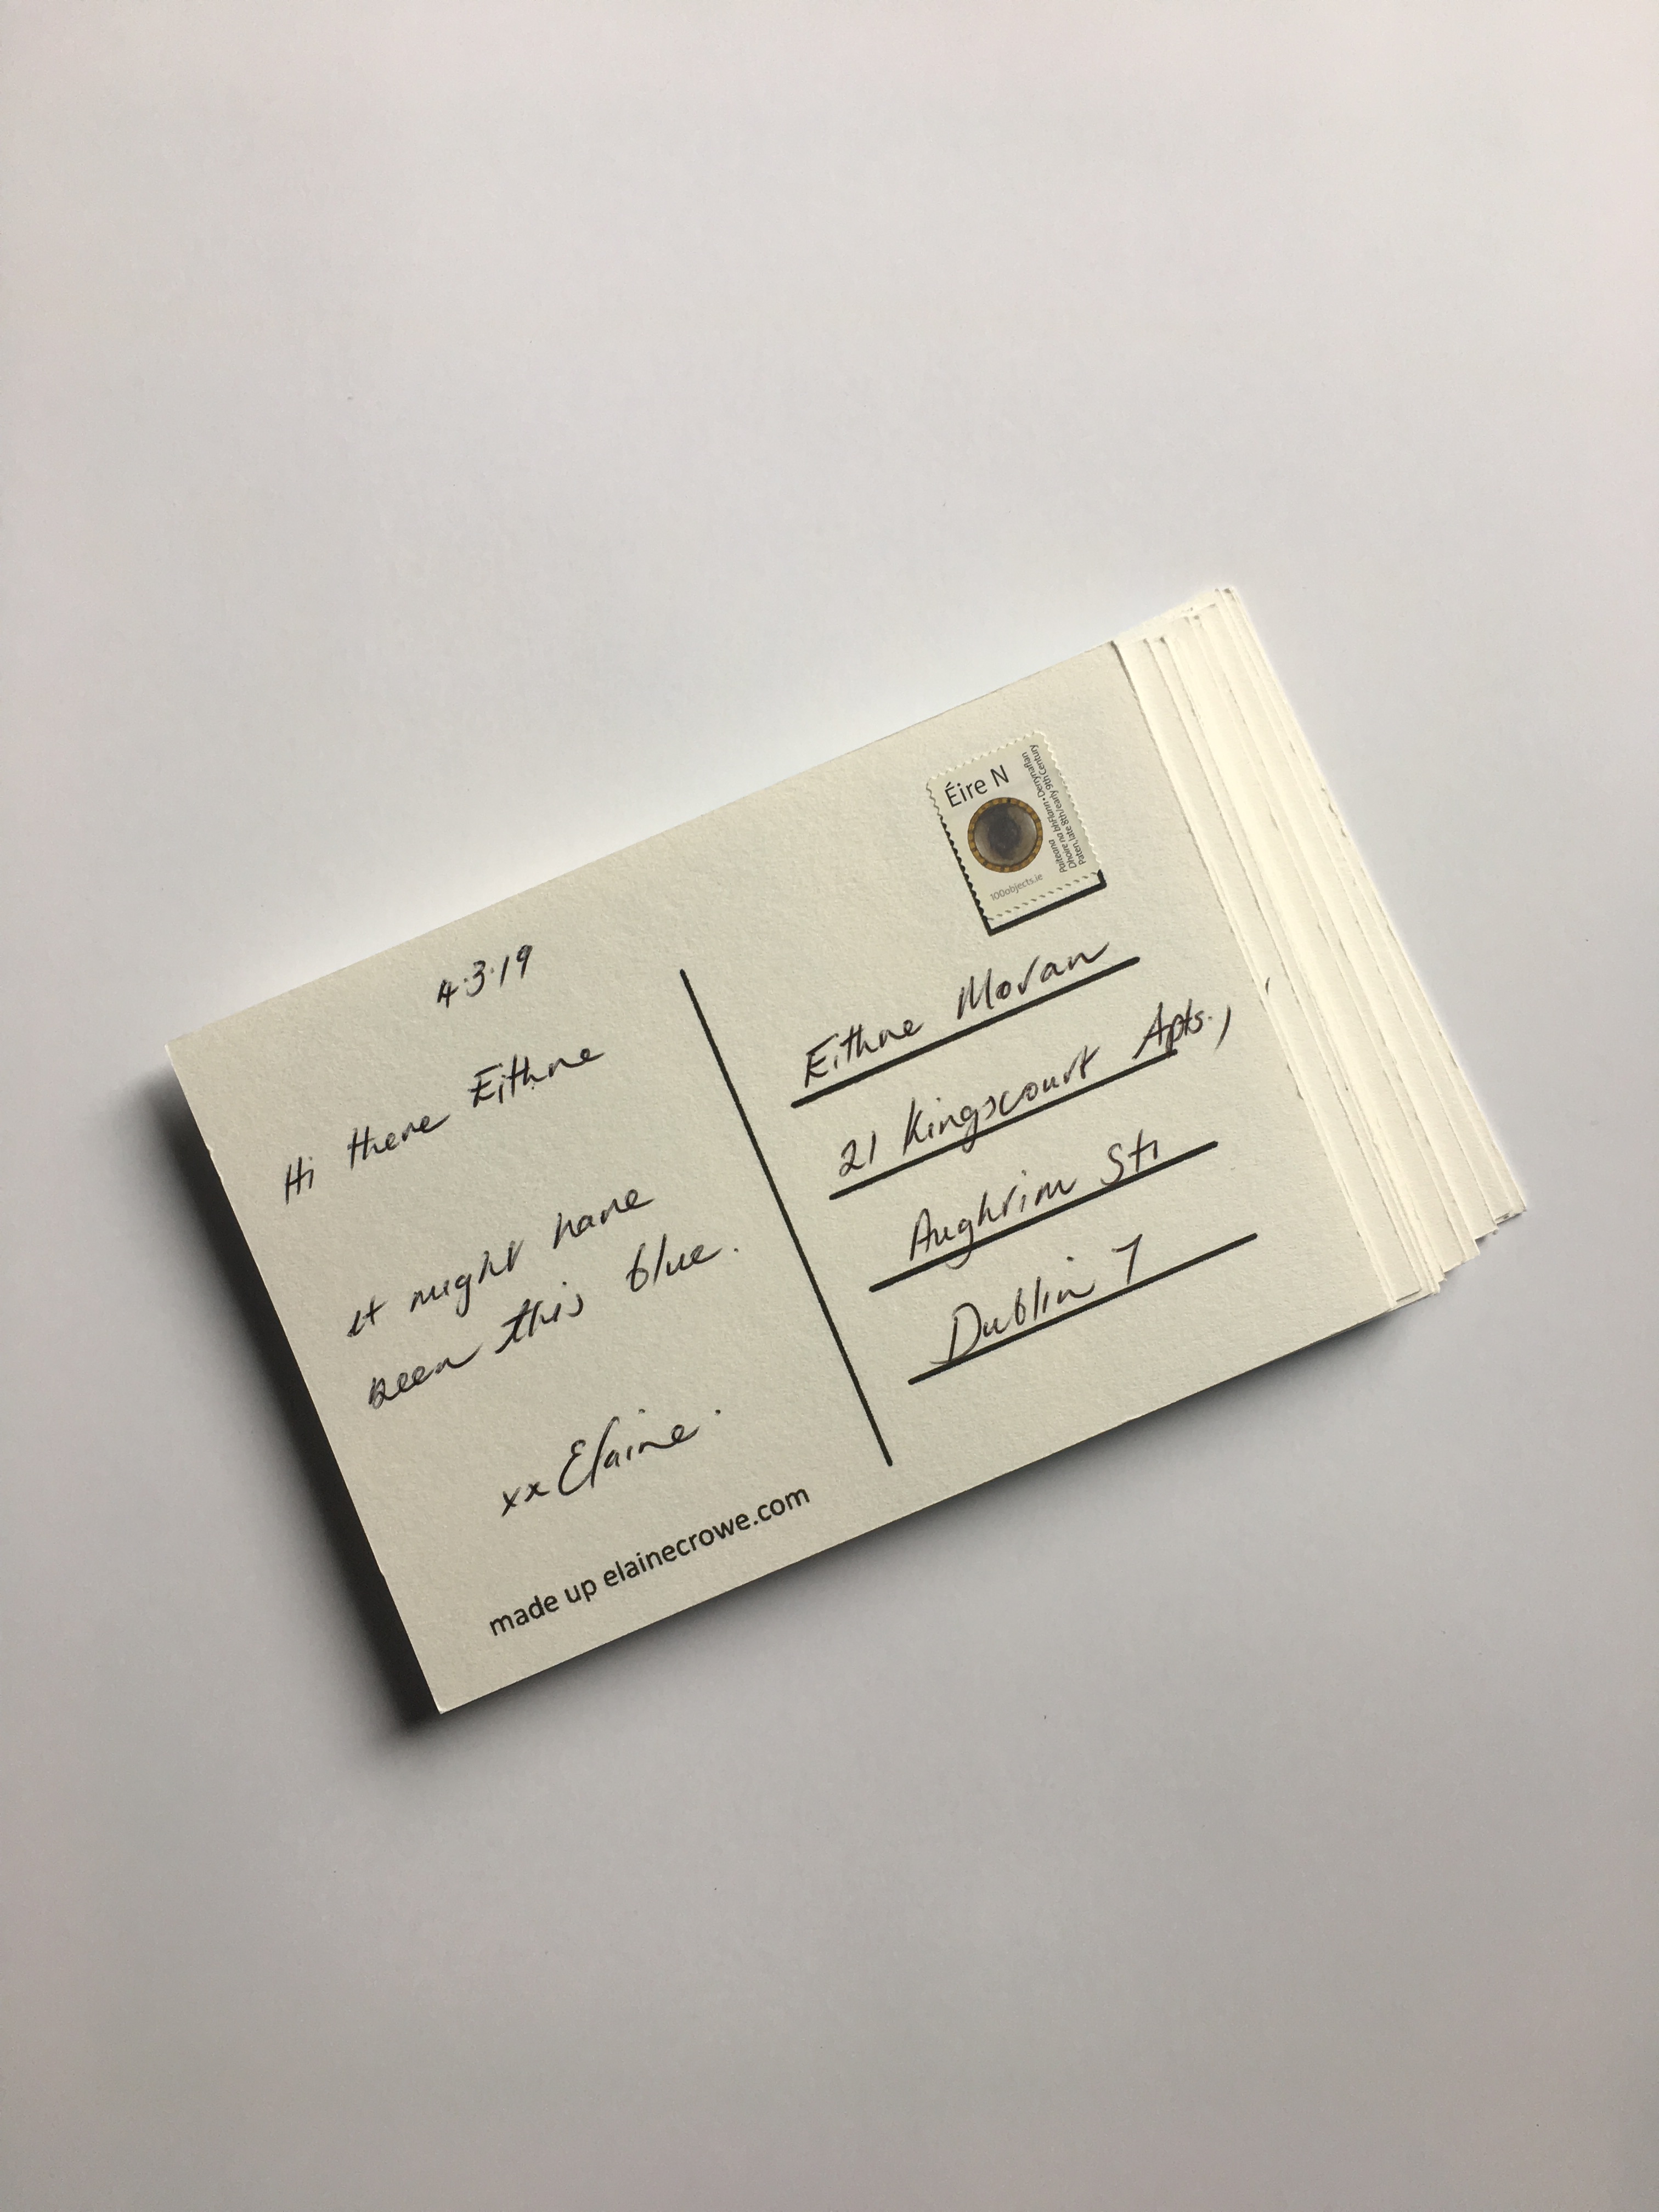 4.3.19
Hi there Eithne
it might have
been this blue.
xx Elaine.
made up elainecrowe.com
Éire N
100objects.ie
Paiteana
Dhoire na bhFlann • Derrynaflan
Paten, late 8th/early 9th Century
Eithne Moran
21 Kingscourt Apts.,
Aughrim St.
Dublin 7